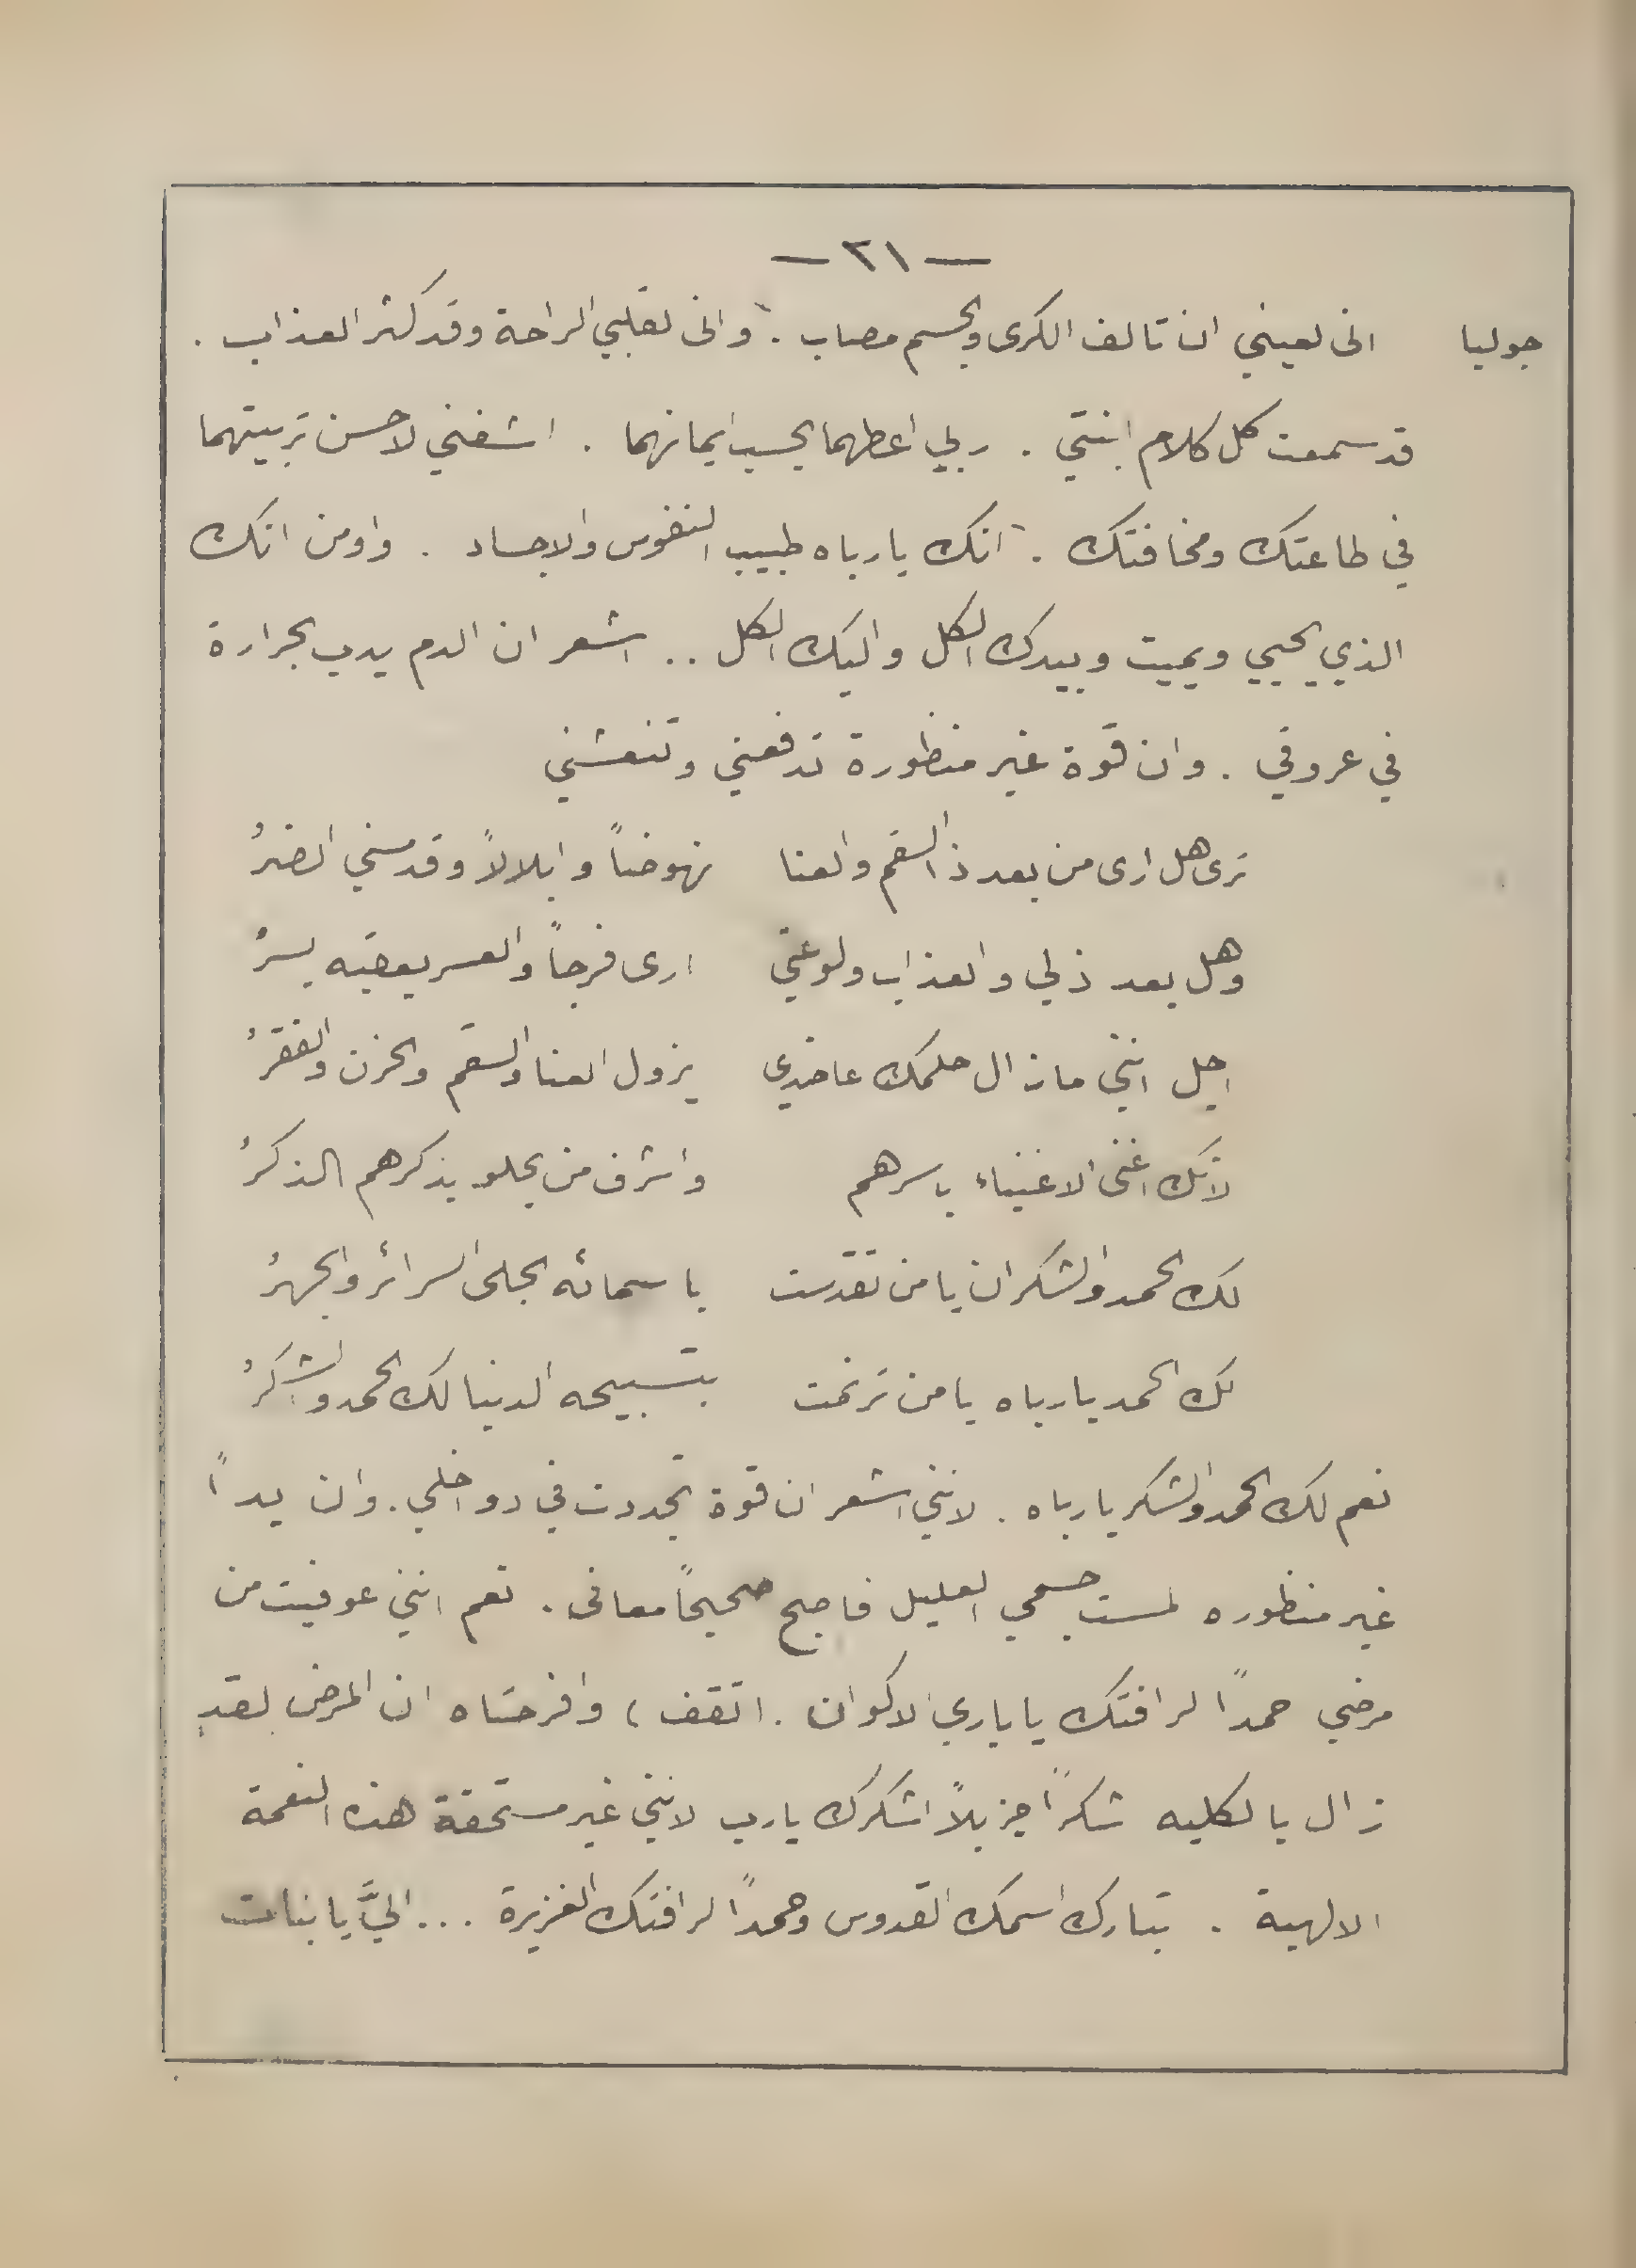 — ٢١ —
جوليا انى لعيني ان تالف الكرى والجسم مصاب . وانى لقلبي الراحة وقد كثر العذاب .
قد سمعت كل كلام ابنتي . ربي اعطهما بحسب ايمانهما . اشفني لاحسن تربيتهما
في طاعتك ومخافتك . انك يارباه طبيب النفوس والاجساد . واومن انك
الذي يحيي ويميت وبيدك الكل واليك الكل .. اشعر ان الدم يدب بحرارة
في عروقي . وان قوة غير منظورة تدفعني وتنعشني
ترى هل ارى من بعد ذا السقم والعنا نهوضاً وابلالاً وقد مسني الضرُ
وهل بعد ذلي والعذاب ولوعتي ارى فرجاً والعسر يعقبه يسرُ
اجل انني مازال حلمك عاضدي يزول العنا والسقم والحزن والفقرُ
لانك اغنى الاغنياء باسرهم واشرف من يحلو بذكرهم الذكرُ
لك الحمد والشكران يا من تقدست باسمائه الجلى السرائر والجهرُ
لك الحمد يارباه يا من ترنمت بتسبيحه الدنيا لك الحمد والشكرُ
نعم لك الحمد والشكر يارباه . لانني اشعر ان قوة تجددت في دواخلي . وان يداً
غير منظوره لمست جسمي العليل فاصبح صحيحاً معافى . نعم انني عوفيت من
مرضي حمداً لرافتك يا باري الاكوان . (تقف) وافرحتاه ان المرض لقد
زال بالكليه شكراً جزيلاً اشكرك يارب لانني غير مستحقة هذه النعمة
الالهية . تبارك اسمك القدوس وحمداً لرافتك الغزيرة ... اليَّ يابنات